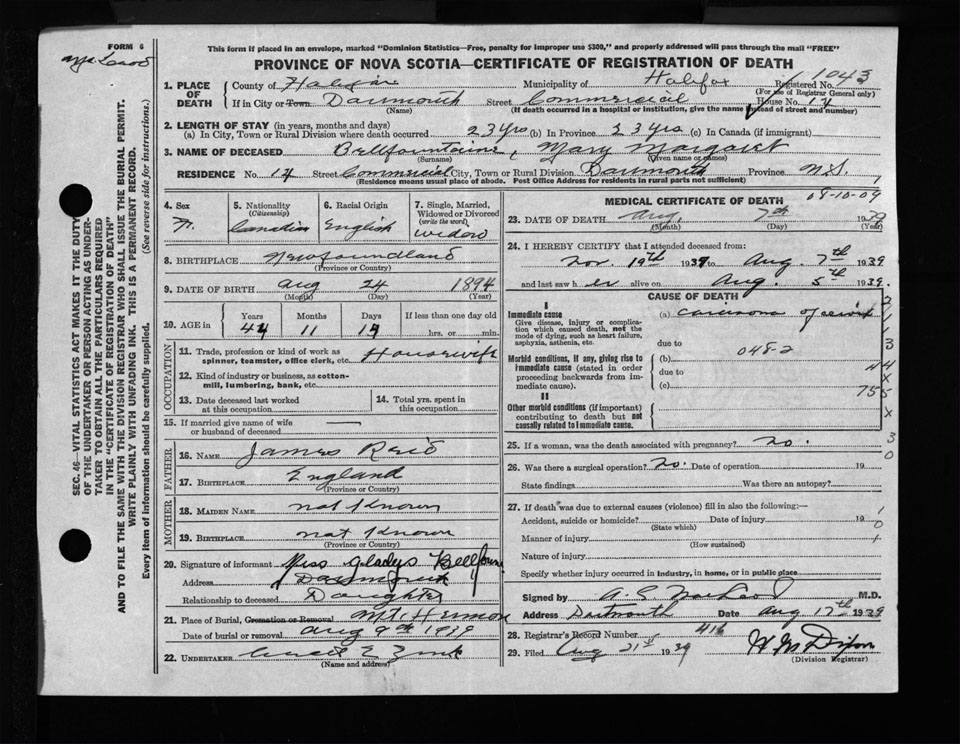 FORM 6
This form if placed in an envelope, marked "Dominion Statistics—Free, penalty for improper use $300," and properly addressed will pass through the mail "FREE"
PROVINCE OF NOVA SCOTIA—CERTIFICATE OF REGISTRATION OF DEATH
SEC. 46—VITAL STATISTICS ACT MAKES IT THE DUTY
OF THE UNDERTAKER OR PERSON ACTING AS UNDER-
TAKER TO OBTAIN ALL THE PARTICULARS REQUIRED
IN THE "CERTIFICATE OF REGISTRATION OF DEATH"
AND TO FILE THE SAME WITH THE DIVISION REGISTRAR WHO SHALL ISSUE THE BURIAL PERMIT.
WRITE PLAINLY WITH UNFADING INK. THIS IS A PERMANENT RECORD.
Every item of information should be carefully supplied. (See reverse side for instructions.)
1. PLACE OF DEATH County of Halifax Municipality of Halifax Registered No. 1043
(For use of Registrar General only)
If in City or Town Dartmouth Street Commercial House No. 14
(Name) (If death occurred in a hospital or institution, give the name instead of street and number)
2. LENGTH OF STAY (in years, months and days)
(a) In City, Town or Rural Division where death occurred 23 yrs (b) In Province 23 yrs (c) In Canada (if immigrant)
3. NAME OF DECEASED Bellfountaine, Mary Margaret
(Surname) (Given name or names)
RESIDENCE No. 14 Street Commercial City, Town or Rural Division Dartmouth Province N.S.
(Residence means usual place of abode. Post Office Address for residents in rural parts not sufficient)
4. Sex F.
5. Nationality (Citizenship) Canadian
6. Racial Origin English
7. Single, Married, Widowed or Divorced (write the word) Widow
8. BIRTHPLACE Newfoundland
(Province or Country)
9. DATE OF BIRTH Aug 24 1894
(Month) (Day) (Year)
10. AGE in Years Months Days If less than one day old
44 11 14 hrs. or min.
OCCUPATION
11. Trade, profession or kind of work as spinner, teamster, office clerk, etc. Housewife
12. Kind of industry or business, as cotton-mill, lumbering, bank, etc.
13. Date deceased last worked at this occupation
14. Total yrs. spent in this occupation
15. If married give name of wife or husband of deceased —
FATHER
16. NAME James Reid
17. BIRTHPLACE England
(Province or Country)
MOTHER
18. MAIDEN NAME not Known
19. BIRTHPLACE not Known
(Province or Country)
20. Signature of informant Miss Gladys Bellfoun
Address Dartmouth
Relationship to deceased Daughter
21. Place of Burial, Cremation or Removal Mt. Hermon
Date of burial or removal Aug 9th 1939
22. UNDERTAKER E. Zink
(Name and address)
MEDICAL CERTIFICATE OF DEATH 08-10-09
23. DATE OF DEATH Aug. 7th 1939
(Month) (Day) (Year)
24. I HEREBY CERTIFY that I attended deceased from:
Nov. 19th 1937 to Aug. 7th 1939
and last saw her alive on Aug. 5th 1939.
CAUSE OF DEATH
I
Immediate cause
Give disease, injury or complication which caused death, not the mode of dying, such as heart failure, asphyxia, asthenia, etc.
(a) Carcinoma of cervix
due to
048-2
Morbid conditions, if any, giving rise to immediate cause (stated in order proceeding backwards from immediate cause).
(b)
due to
(c)
755
II
Other morbid conditions (if important) contributing to death but not causally related to immediate cause.
25. If a woman, was the death associated with pregnancy? no.
26. Was there a surgical operation? no. Date of operation 19
State findings Was there an autopsy?
27. If death was due to external causes (violence) fill in also the following:—
Accident, suicide or homicide? Date of injury 19
(State which)
Manner of injury
(How sustained)
Nature of injury
Specify whether injury occurred in industry, in home, or in public place
Signed by M.D.
Address Dartmouth Date Aug 17th 1939
28. Registrar's Record Number 416
29. Filed Aug 21st 1939 H M Dixon
(Division Registrar)